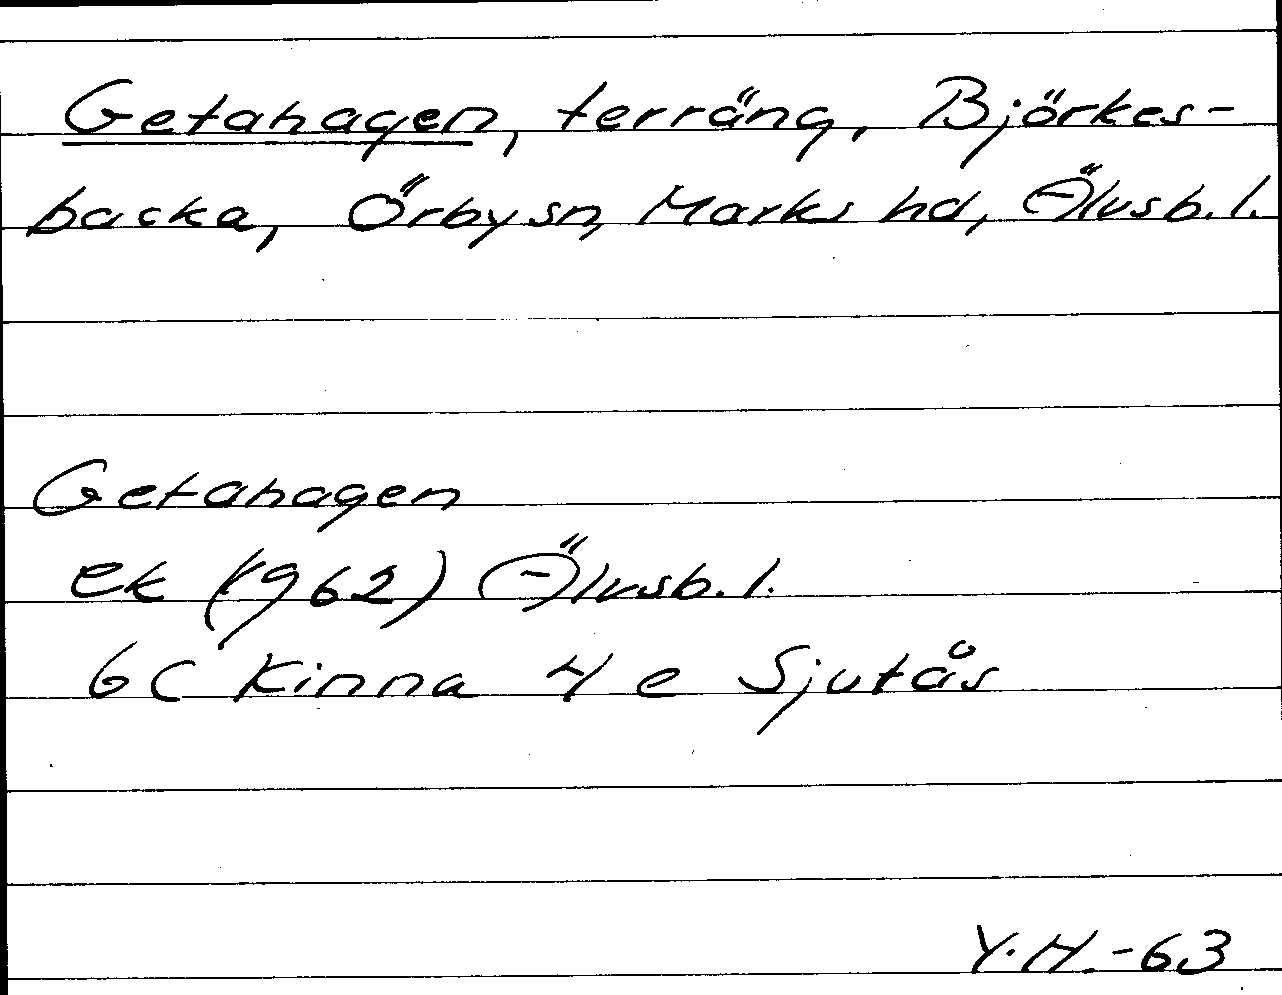 Getahagen, terräng, Björkes-
backa, Örby sn, Marks hd, Älvsb. l.
Getahagen
ek (1962) Älvsb. l.
6C Kinna 4 e Sjutås
Y.H.-63